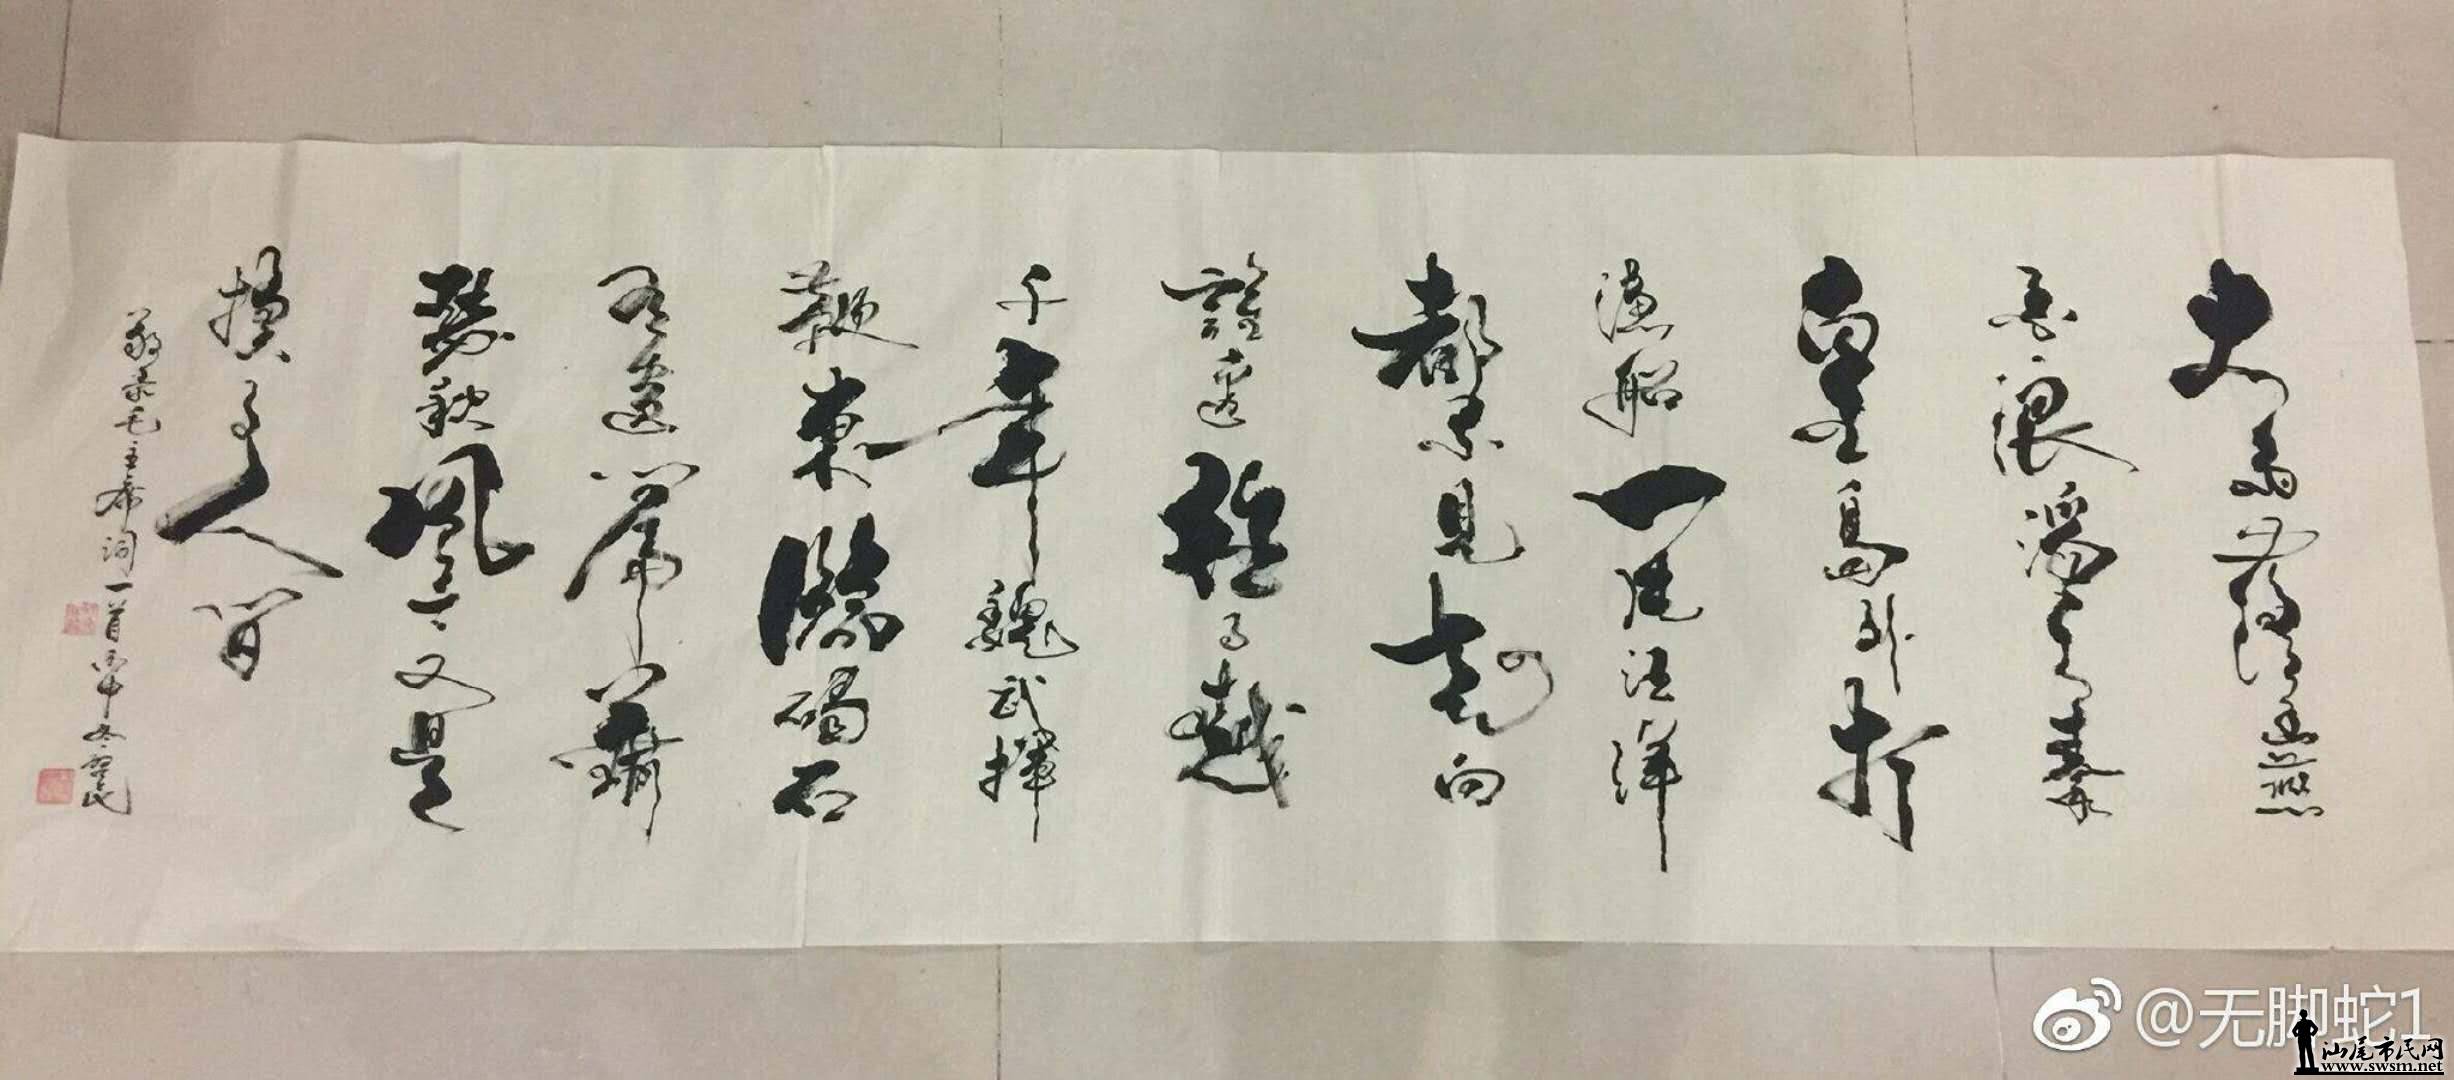 大雨落幽燕
白浪滔天秦
皇島外打
漁船一片汪洋
都不見知向
誰邊往事越
千年魏武揮
鞭東臨碣石
有遺篇蕭
瑟秋風今又是
換了人間
敬录毛主席词一首丙申冬
@无脚蛇1
汕尾市民网
www.swsm.net